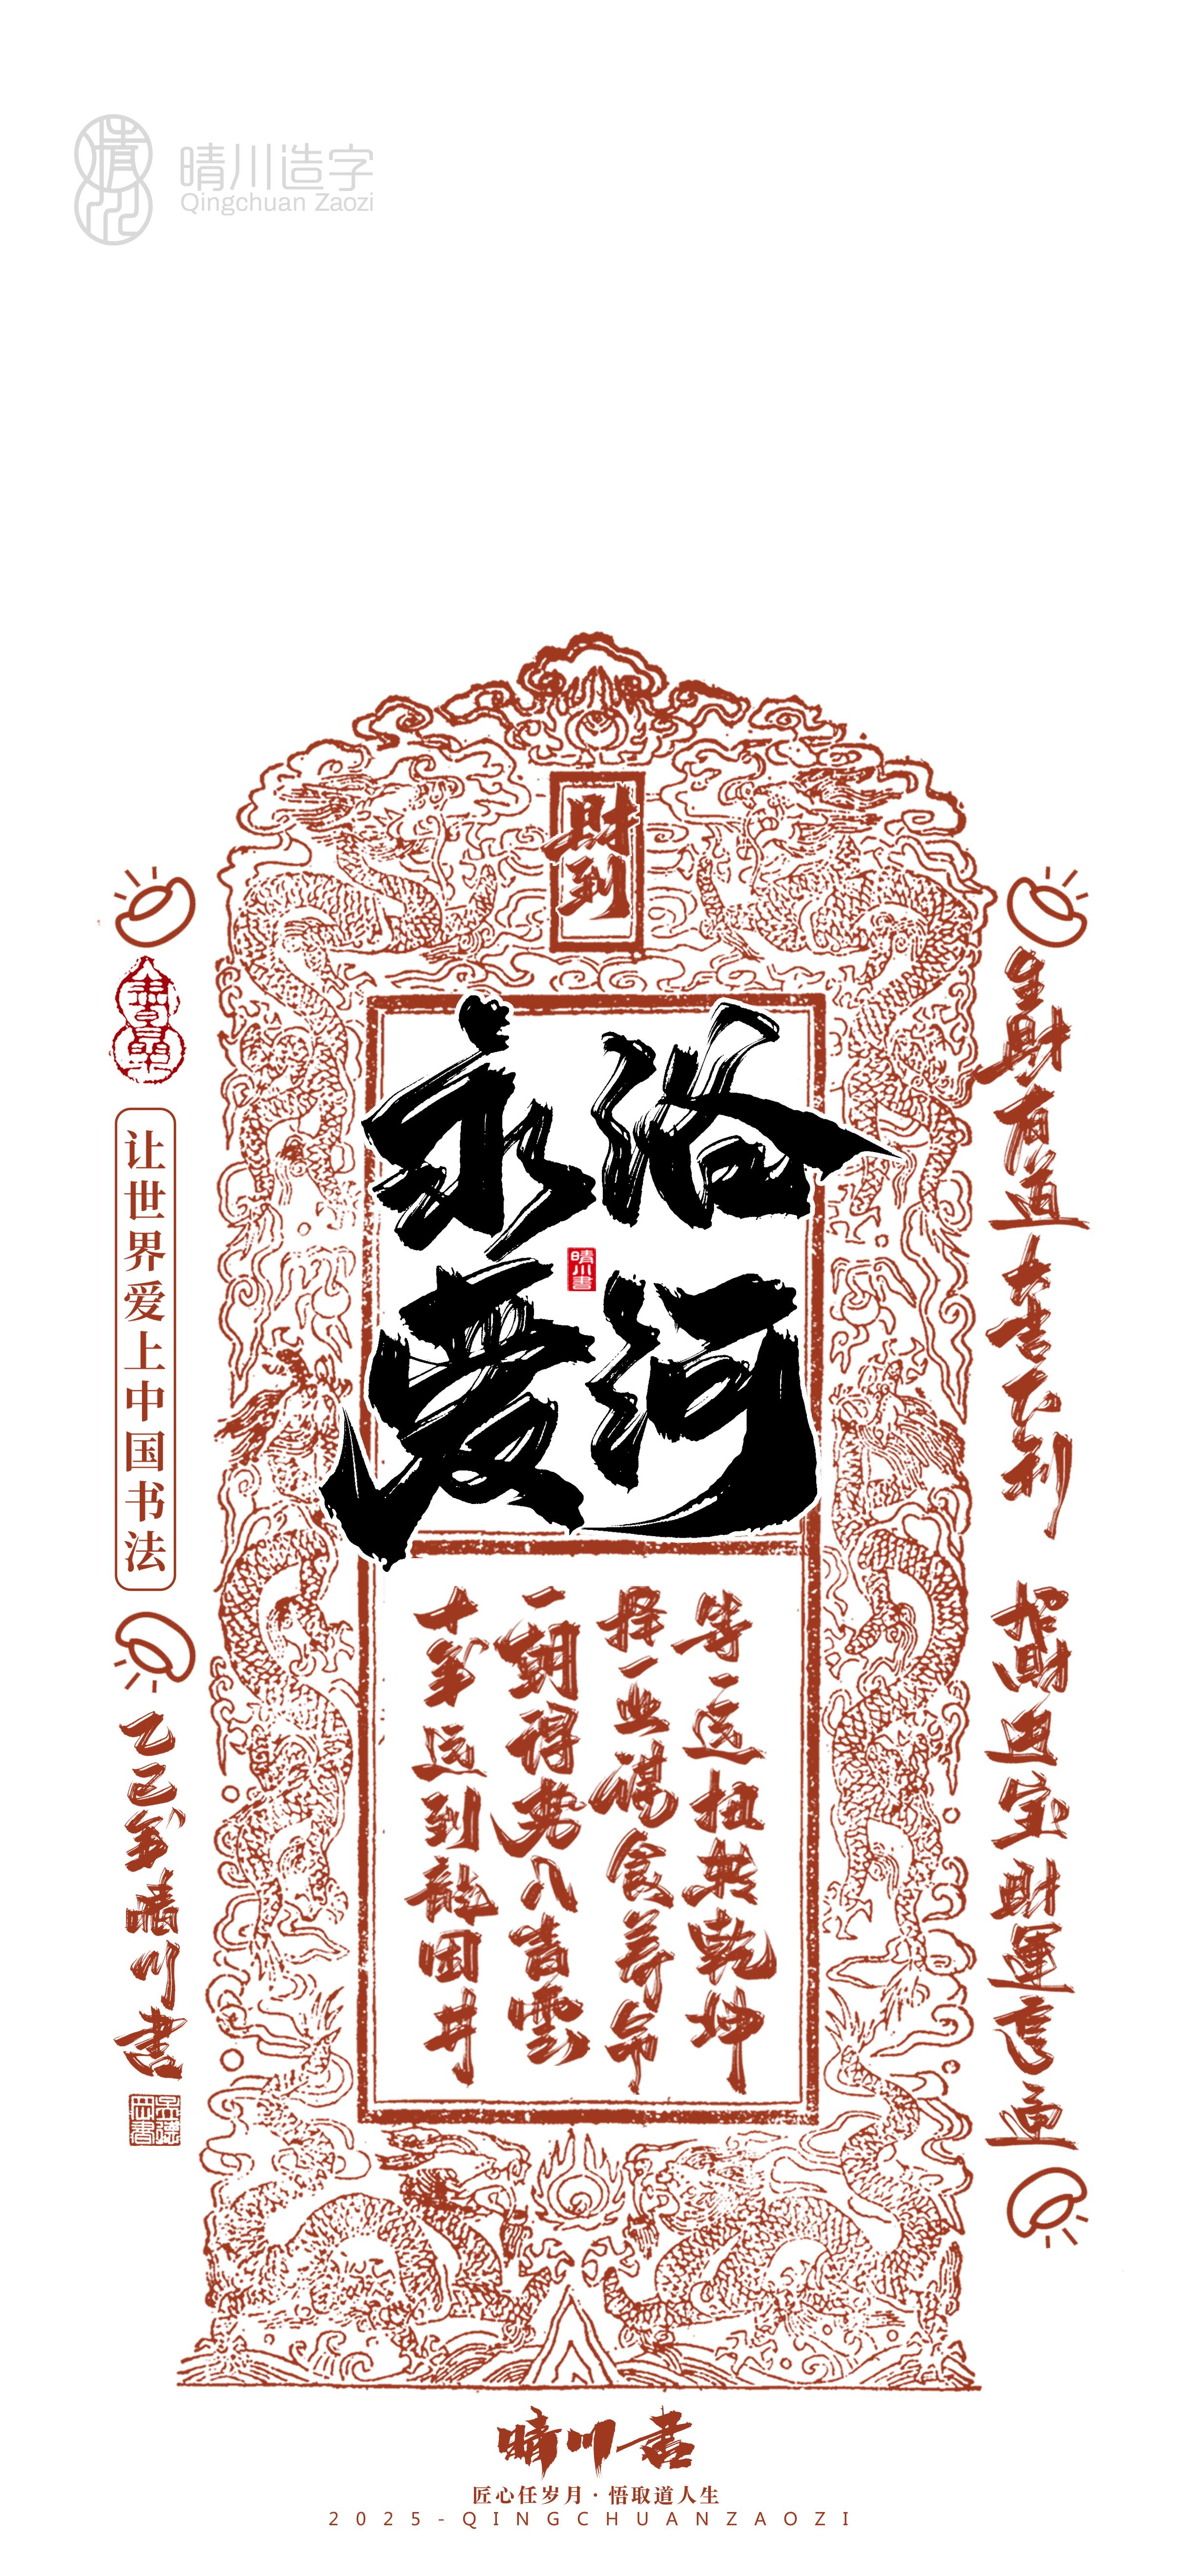 晴川造字
Qingchuan Zaozi
財到
永浴
爱河
晴川書
十年运到龍困井
一朝得势入青雲
择一业谋食养命
等一运扭转乾坤
生財有道大吉大利
招財进宝財運亨通
让世界爱上中国书法
乙巳年晴川書
晴川书
匠心任岁月·悟取道人生
2025-QINGCHUANZAOZI